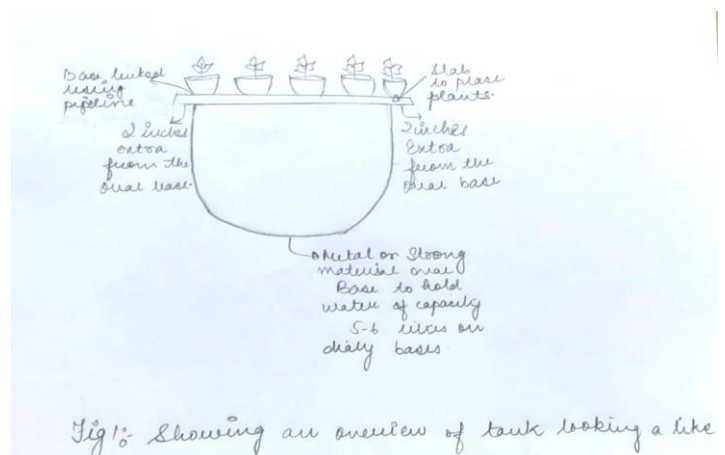 Base linked
using
pipeline
Slab
to place
plants.
2 inches
extra
from the
oval base.
2 inches
Extra
from the
oval base
Metal or Strong
material oval
Base to hold
water of capacity
5-6 litres on
dialy bases.
Fig 1:- Showing an overview of tank looking a like